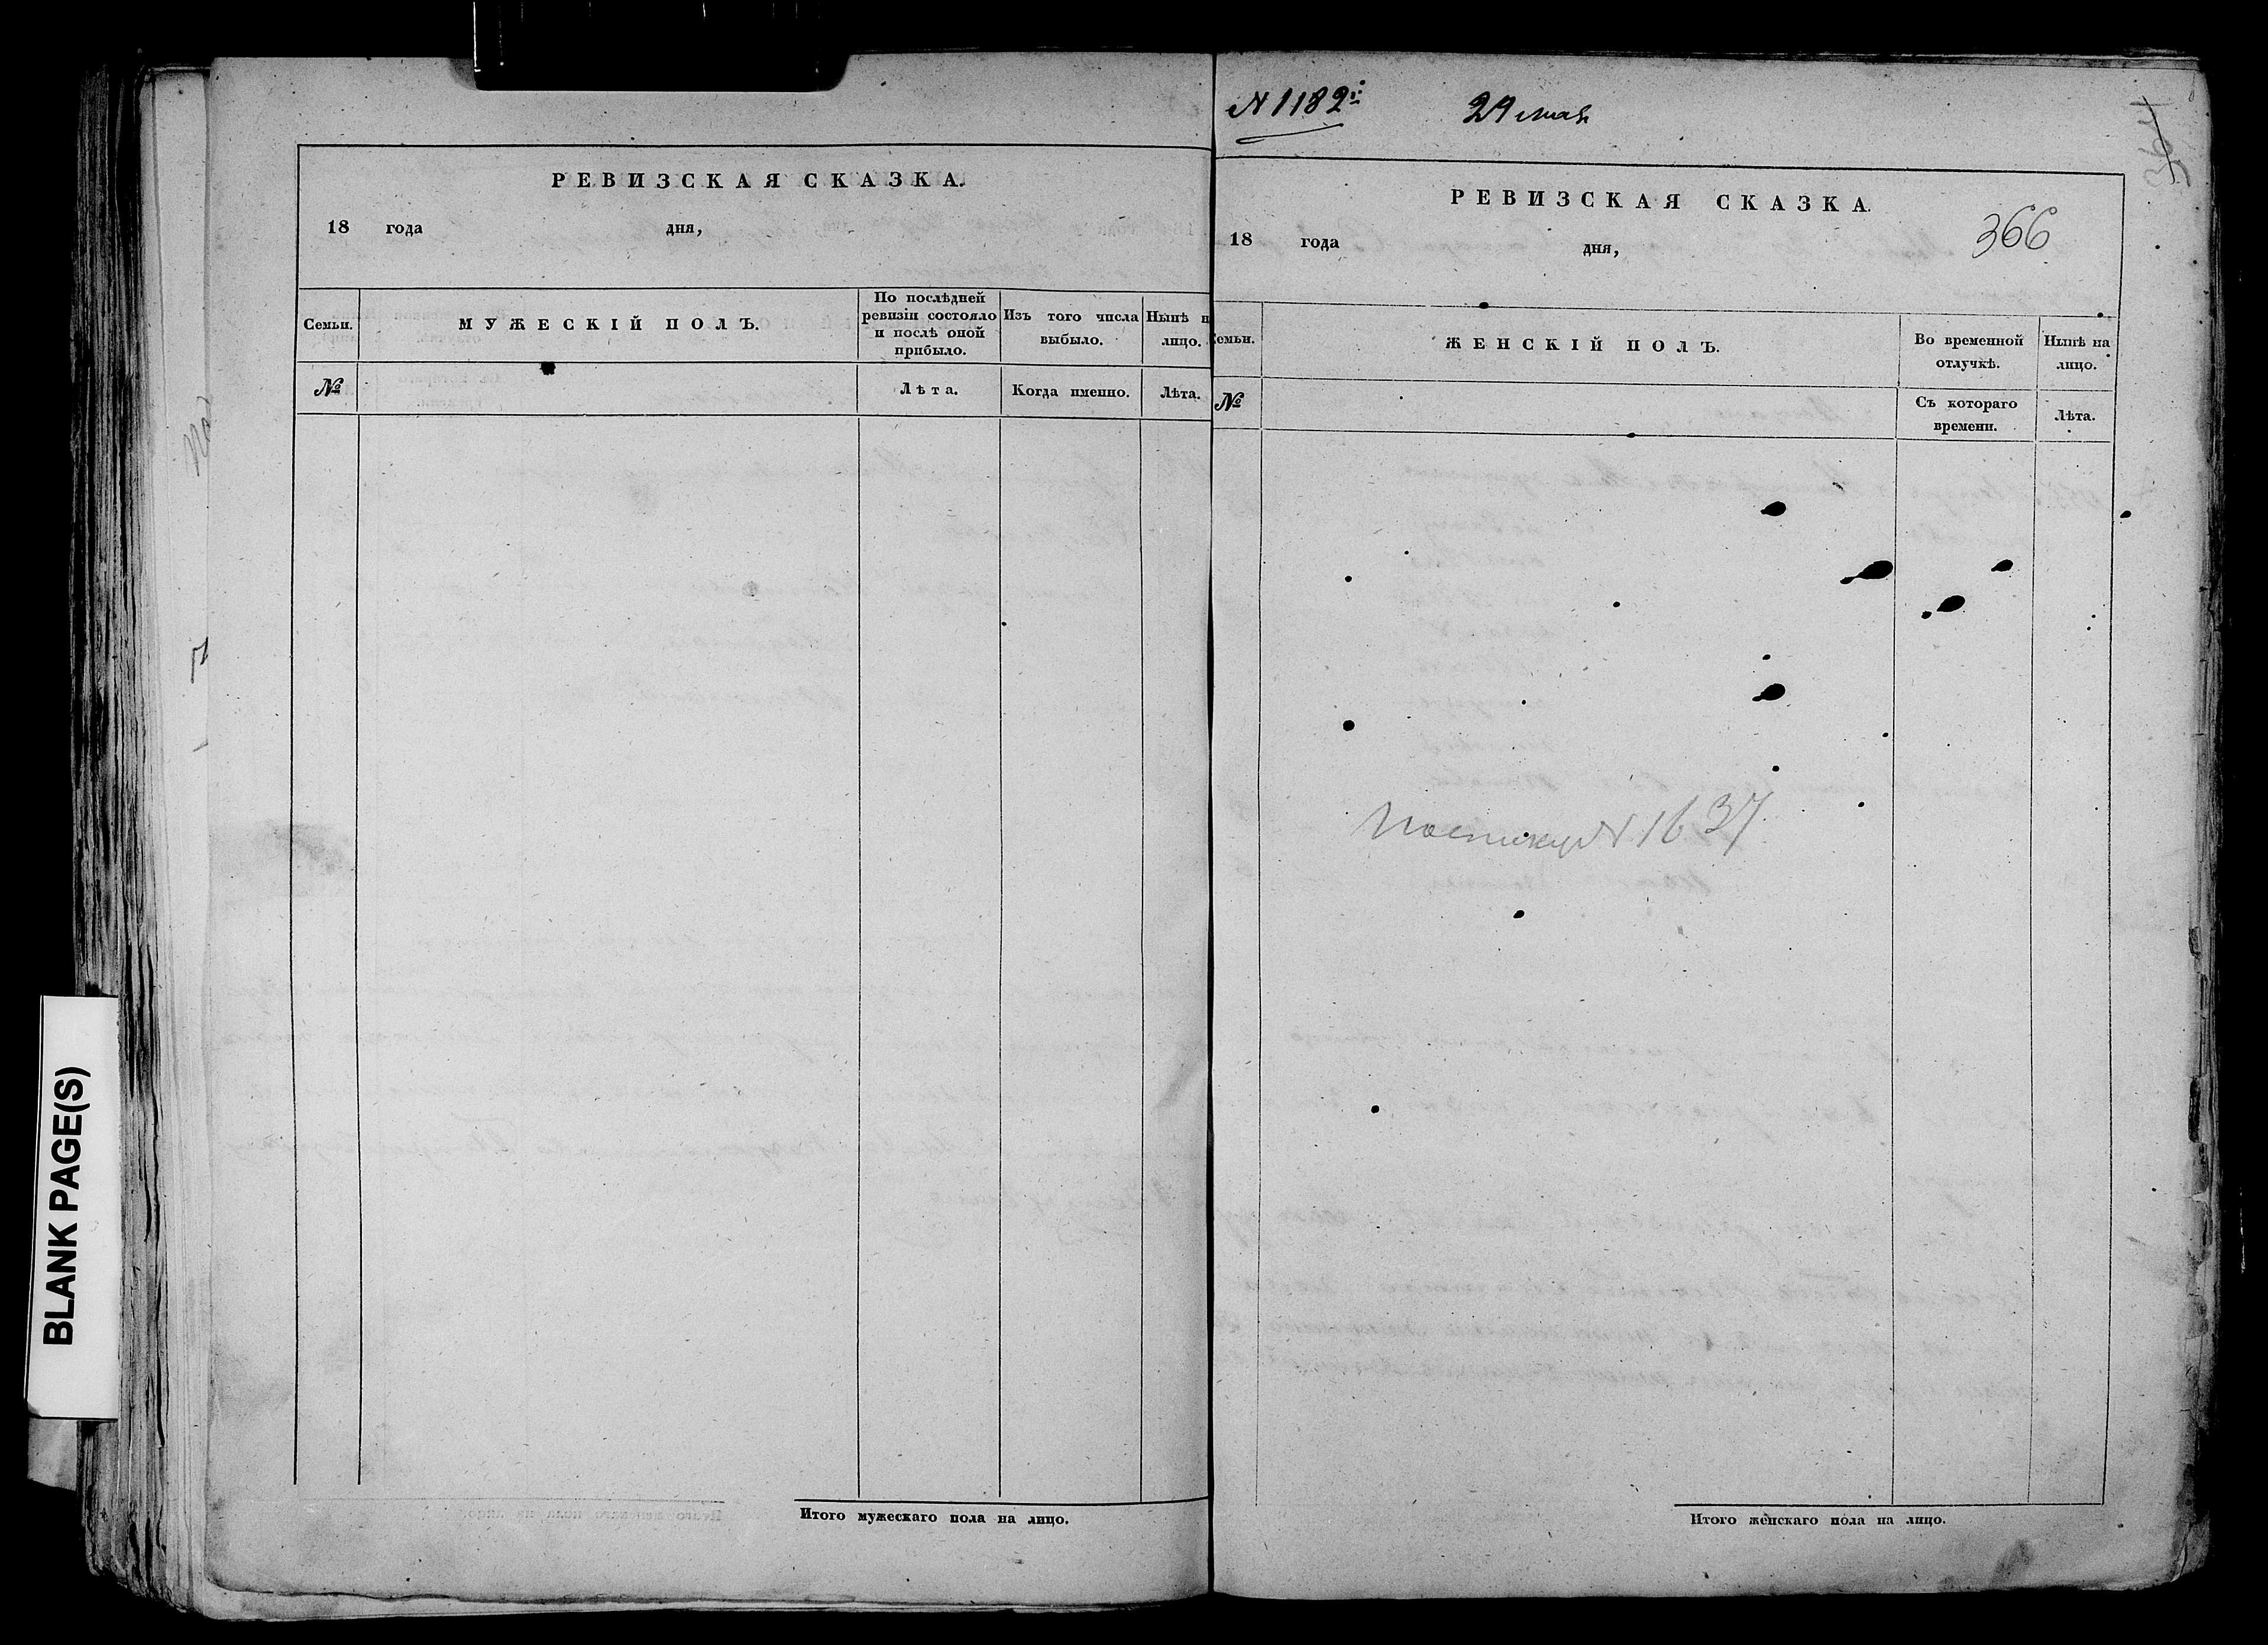 BLANK PAGE(S)
РЕВИЗСКАЯ СКАЗКА.
18 года дня,
Семьи.
МУЖЕСКІЙ ПОЛЪ.
По послѣдней
ревизіи состояло
и послѣ оной
прибыло.
Изъ того числа
выбыло.
Нынѣ н
лицо.
№
Лѣта.
Когда именно.
Лѣта.
Итого мужескаго пола на лицо.
N 1182й 29 мая
РЕВИЗСКАЯ СКАЗКА.
366
18 года дня,
емьи.
ЖЕНСКІЙ ПОЛЪ.
Во временной
отлучкѣ.
Нынѣ на
лицо.
№
Съ котораго
времени.
Лѣта.
N 1637
Итого женскаго пола на лицо.